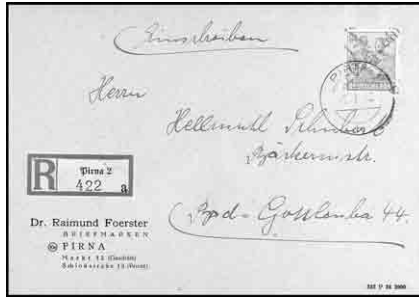 Einschreiben
PIRNA
Herrn
Hellmuth Schubert
Bäckermstr.
Bad-Gottleuba 44.
R Pirna 2
422 a
Dr. Raimund Foerster
BRIEFMARKEN
PIRNA
Markt 12 (Geschäft)
Schloßstraße 13 (Privat)